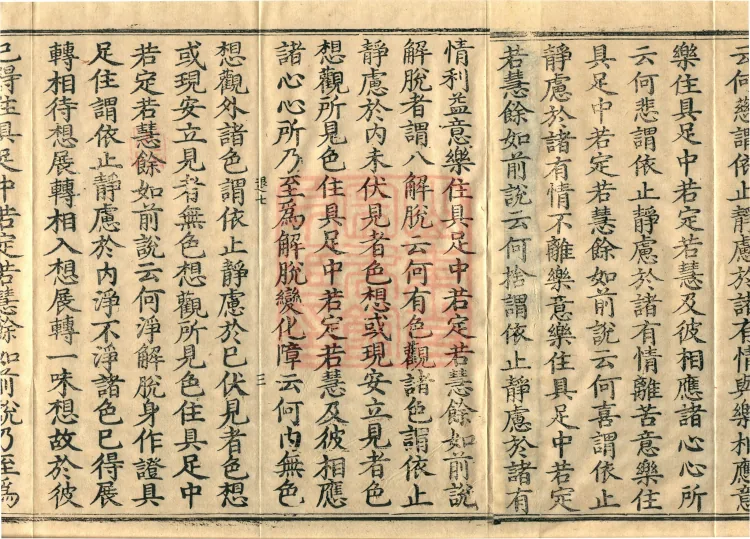 云何慈謂依止靜慮於諸有情與樂相應意
樂住具足中若定若慧及彼相應諸心心所
云何悲謂依止靜慮於諸有情離苦意樂住
具足中若定若慧餘如前說云何喜謂依止
靜慮於諸有情不離樂意樂住具足中若定
若慧餘如前說云何捨謂依止靜慮於諸有
情利益意樂住具足中若定若慧餘如前說
解脫者謂八解脫云何有色觀諸色謂依止
靜慮於內未伏見者色想或現安立見者色
想觀所見色住具足中若定若慧及彼相應
諸心心所乃至為解脫變化障云何內無色
退七
三
想觀外諸色謂依止靜慮於已伏見者色想
或現安立見者無色想觀所見色住具足中
若定若慧餘如前說云何淨解脫身作證具
足住謂依止靜慮於內淨不淨諸色已得展
轉相待想展轉相入想展轉一味想故於彼
已得住具足中若定若慧餘如前說乃至為